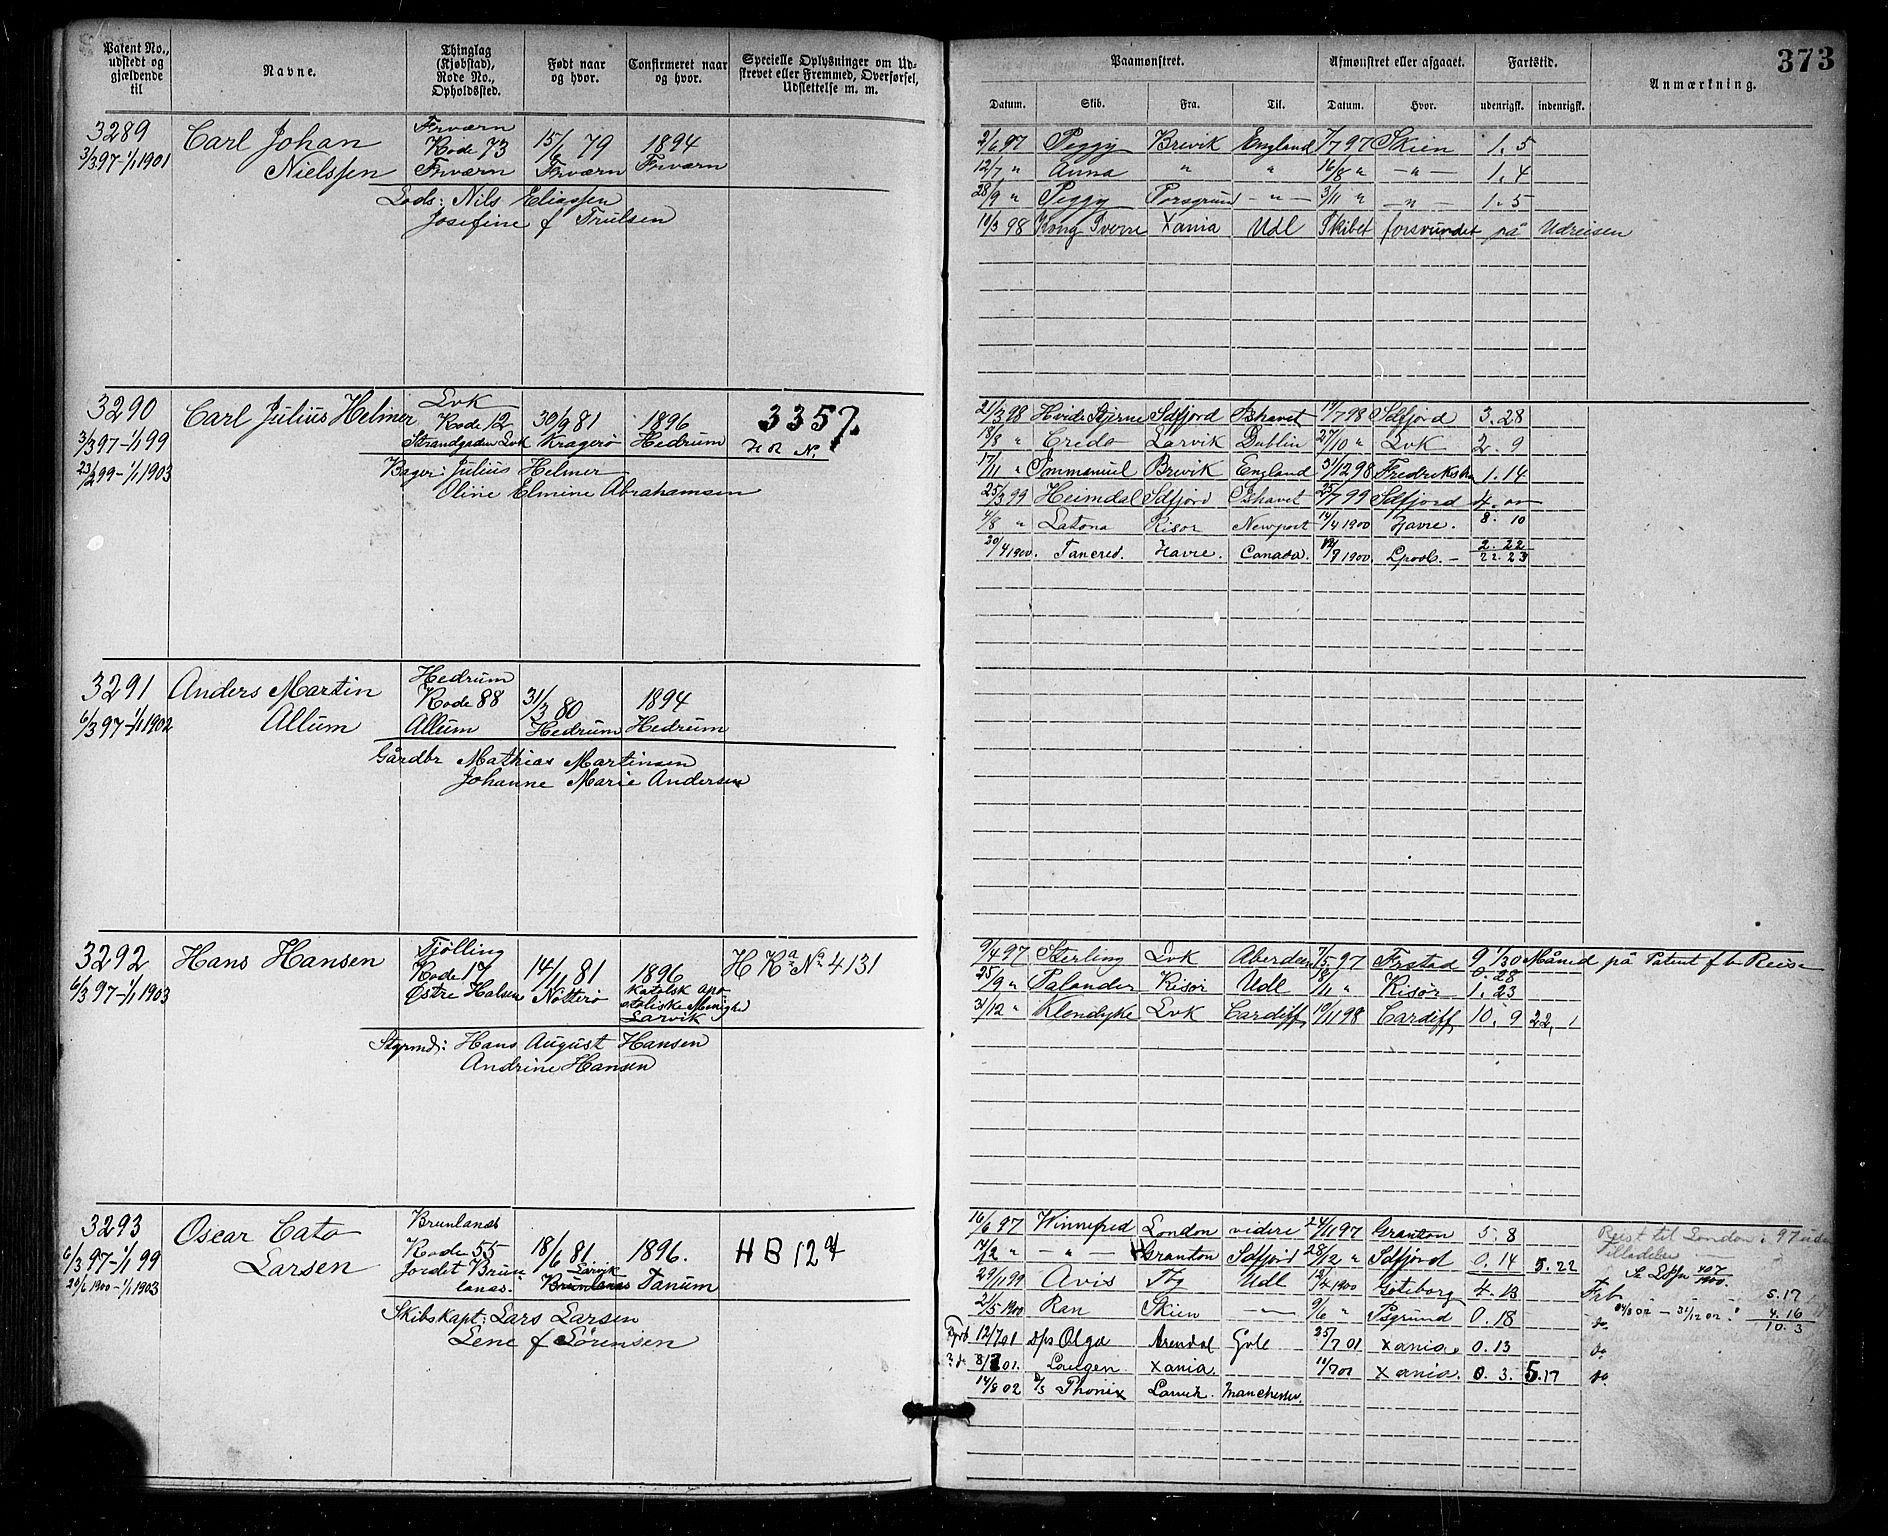 373
Patent No., udstedt og gjældende til | Navne. | Thinglag (Kjøbstad), Rode No., Opholdssted. | Født naar og hvor. | Confirmeret naar og hvor. | Specielle Oplysninger om Udskrevet eller Fremmed, Overførsel, Udslettelse m. m.
Paamønstret. | Afmønstret eller afgaaet. | Fartstid. | Anmærkning.
Datum. | Skib. | Fra. | Til. | Datum. | Hvor. | udenrigsk. | indenrigsk.
3289
3/3 97 - 1/1 1901
Carl Johan
Nielssen
Frværn
Rode 73
Frværn
15/6 79
Frværn
1894
Frværn
Lods: Nils Eliassen
Josefine f Trulsen
2/6 97 Peggy Brevik England 7/7 97 Skien 1. 5
12/7 " Anna " " 16/8 " -"- 1. 4
28/9 " Peggy Porsgrund -"- 3/11 " -"- 1. 5
10/3 98 Kong Sverre Xania Udl Skibet forsvundet på Udreisen
3290
3/3 97 - 1/1 99
23/2 99 - 1/1 1903
Carl Julius Helmer
Lvk
Rode 12
Strandgaden Lvk
30/9 81
Kragerø
1896
Hedrum
3357.
H R N.
Bager: Julius Helmer
Oline Elmine Abrahamsen
21/3 98 Hvide Stjerne Sdfjord Ishavet 19/7 98 Sdfjord 3. 28
18/8 " Credo Larvik Dublin 27/10 " Lvk 2. 9
17/11 " Immanuel Brevik England 31/12 98 Fredrikstad 1. 14
25/3 99 Heimdal Sdfjord Ishavet 25/7 99 Sdfjord 4. 00
4/8 " Latona Risør Newport 14/4 1900 Havre. 8. 10
20/4 1900. Tancred. Havre. Canada. 12/7 1900 Lpool. - 2. 22
22. 23
3291
6/3 97 - 1/1 1902
Anders Martin
Allum
Hedrum
Rode 88
Allum
31/3 80
Hedrum
1894
Hedrum
Gårdbr Mathias Martinsen
Johanne Marie Andersen
3292
6/3 97 - 1/1 1903
Hans Hansen
Tjølling
Rode 17
Østre Halsen
14/11 81
Nøtterø
1896
Katolsk apo
stoliske Menighe
Larvik
H Ka No 4131
Styrmd: Hans August Hansen
Andrine Hansen
9/4 97 Sterling Lvk Aberdeen 7/5 97 Frstad 9 1/30 Måned på Patent f b Reise
0. 28
25/9 " Palander Risør Udl 18/11 " Risør 1. 23
3/12 " Klondyke Lvk Cardiff 12/11 98 Cardiff 10. 9 22, 1
3293
6/3 97 - 1/1 99
20/6 1900 - 1/1 1903
Oscar Cato
Larsen
Brunlanæs
Rode 55
Jordet Brun
lanæs.
18/6 81
Larvik
Brunlanæs
1896.
Tanum
H B 127
Skibskapt: Lars Larsen
Lene f Sørensen
16/6 97 Winnefred London videre 24/11 97 Granton 5. 8 Reist til London i 97 uden
Tilladelse
14/12 " -"- Granton Sdfjord 28/12 " Sdfjord 0. 14 5. 22
29/11 99 Avis Tbg Udl 12/4 1900 Göteborg 4. 13 Frb 5. 17
21/5 1900 Ran Skien -"- 9/6 " Psgrund 0. 18 do 4. 16
10. 3
12/7 01 d/s Olga Arendal Gefle 25/7 01 Xania. 0. 13 do
8/7 01. Laugen Xania. 11/7 01 Xania. 0. 3. 5. 17 do
14/8 02 D/S Phönix Larvik. Manchester.